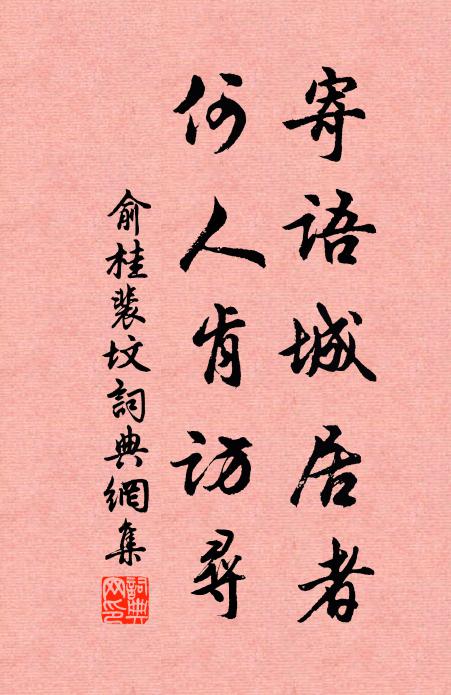 寄語城居者
何人肯訪尋
俞桂裴坟詞典網集
詞典
网印